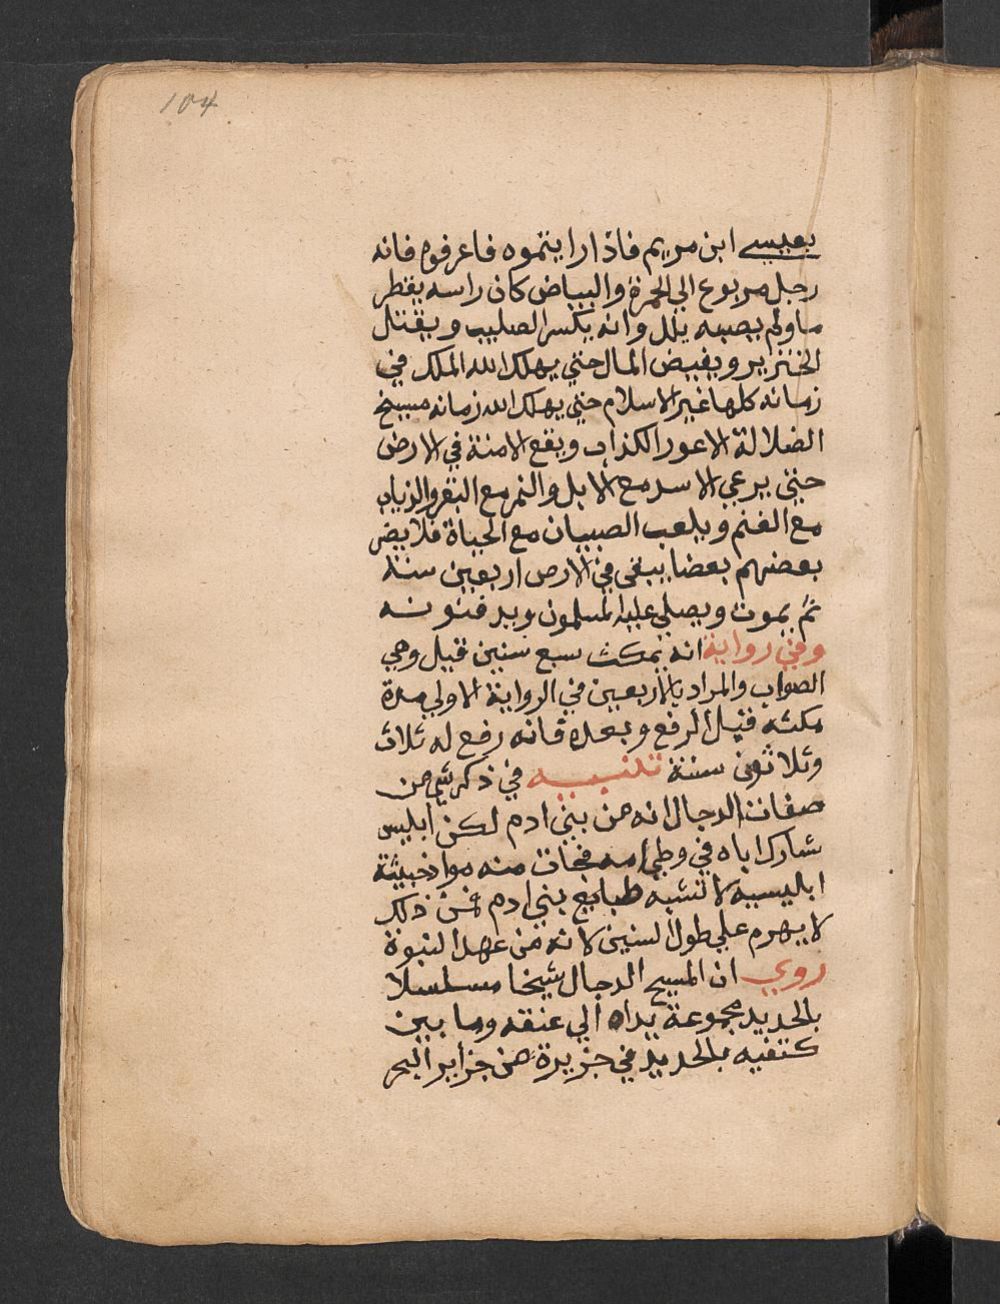 104
بعيسي ابن مريم فاذا رايتموه فاعرفوه فانه
رجل مربوع الي الحمرة والبياض كان راسه يقطر
ما ولم يصبه بلل وانه يكسر الصليب ويقتل
الخنزير ويفيض المال حتي يهلك الله الملل في
زمانه كلها غير الاسلام حتي يهلك الله زمانه مسيح
الضلالة الاعور الكذاب ويقع الامنة في الارض
حتي يرعي الاسد مع الابل والنمر مع البقر والذياب
مع الغنم ويلعب الصبيان مع الحياة فلا يضر
بعضهم بعضا يبقي في الارض اربعين سنة
ثم يموت ويصلي عليه المسلمون ويدفنونه
وفي رواية انه يمكث سبع سنين قيل وهي
الصواب والمراد بالاربعين في الرواية الاولي مدة
مكثه قبل الرفع وبعده فانه رفع له ثلاث
وثلاثون سنة تنبيه في ذكر شي من
صفات الدجال انه من بني ادم لكن ابليس
شارك اباه في وطي امه فجات منه مواد خبيثة
ابليسية لا تشبه طبايع بني ادم فمن ذلك
لا يهرم علي طول السنين لانه من عهد النبوة
روي ان المسيح الدجال شيخا مسلسلا
بالحديد مجموعة يداه الي عنقه وما بين
كتفيه بالحديد في جزيرة من جزاير البحر